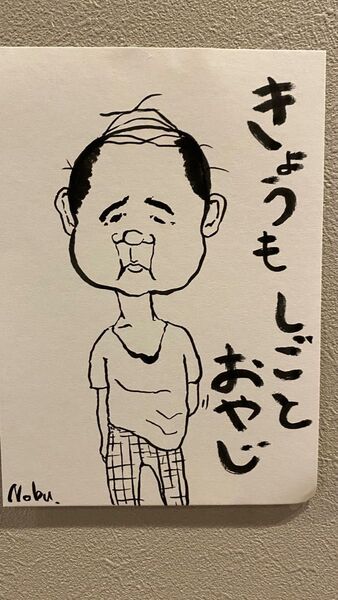 きょうも しごと
おやじ
Nobu.